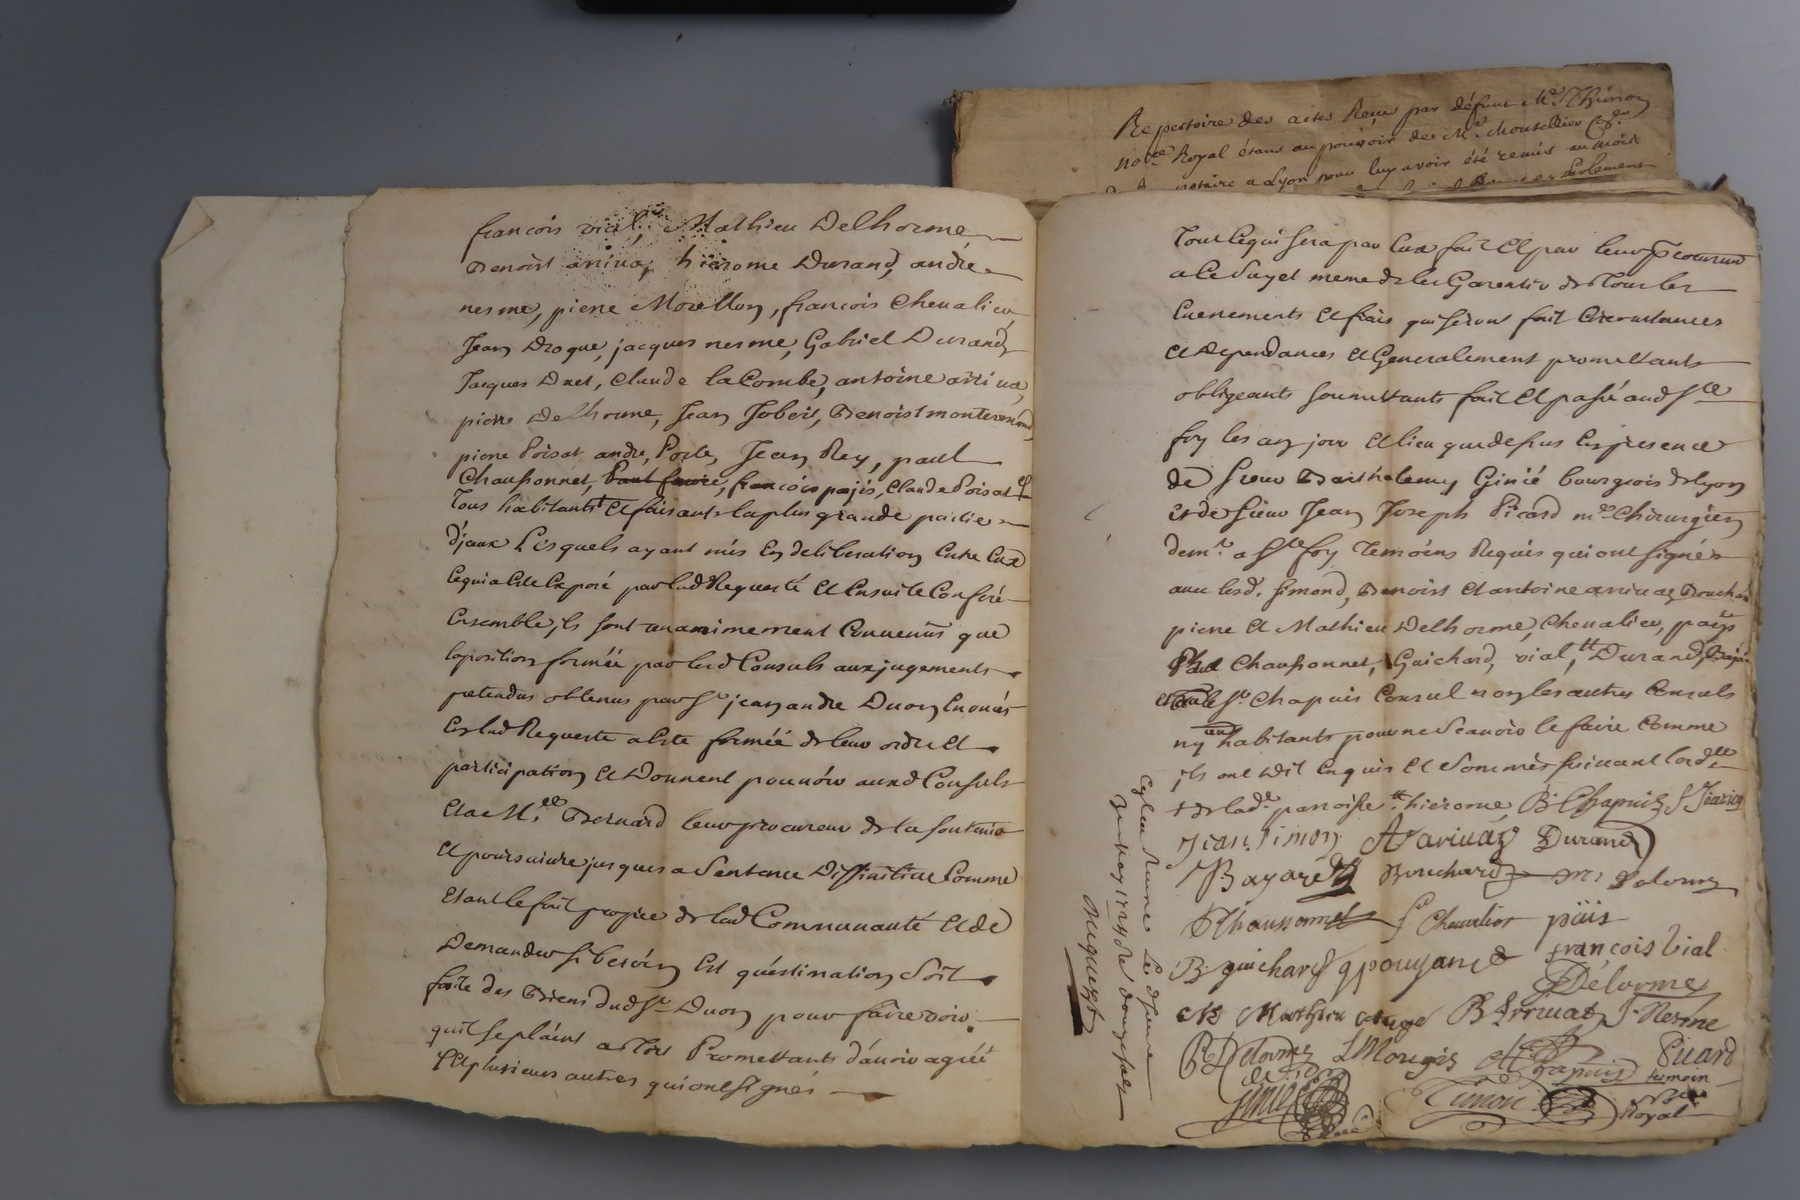 Repertoire des actes Reçu par défunt Me Thimon
nore Royal étant au pouvoir de Me Montellier
notaire a Lyon pour luy avoir été remis au mois
françois vial, Mathieu Delhorme
Benoist arriva, hierome Durand, andre
nesme, pierre Morellon, françois Chevalier
Jean Drogue, jacques nesme, Gabriel Durand
Jacques Duet, Claude laCombe, antoine arriva,
pierre Delhorme, Jean Jobert, Benoist
pierre Poisat andre, Porte, Jean Rey, paul
Chaussonnet, françois pajis, Claude Poisat et
Tous habitants et faisants la plus grande partie
d'jaux Lesquels ayant mis En deliberation Entre Eux
Cequi a Eté Exposé par lad Requeste Et Ensuite Conferé
Ensemble, ils sont unanimement Convenus que
loposition formée par lesd Consuls aux jugements
pretendus obtenus par Sr jean andre Duon Enoncés
En lad Requeste a Este formée de leur ordre Et
participation Et Donnent pouvoir auxd Consuls
Et a Me Bernard leur procureur de la soutenir
Et poursuivre jusques a Sentence Diffinitive Comme
Etant le fait propre de lad Communauté Et de
Demander si besoin Est qu'estimation Soit
faite des Biens dud Sr Duon pour faire voir
quil se plaint a Tort Promettants d'avoir agréé
Et plusieurs autres qui ont Signés
Tout Cequi sera par Eux fait Et par leur procureur
a Ce Sujet meme de les Garentir de Tous les
Evenements Et frais qui seront fait Circonstances
Et Dependances Et Generalement promettants
obligeants soumettants fait Et passé aud Ste
foy les an jour Et lieu que dessus En presence
de sieur Barthelemy Ginié bourgeois de Lyon
et de sieur Jean Joseph Picard me Chirurgien
demt a Ste foy Temoins Requis qui ont signés
avec lesd. Simond, Benoist Et antoine arrivaz Bouchard
pierre Et Mathieu Delhorme, Chevalier, pays
Chaussonnet, Guichard, vial, Durand,
Sr Chapuis Consul non les autres Consuls
ny habitants pour ne Scavoir le faire Comme
ils ont Dit Enquis Et Sommés suivant lordce
de lade paroisse hierome B. Chapuis
Jean Simon A arivaz Durand
Bayard Bouchard m. Delorme
P Chaussonnet f Chevalier païs
B guichard françois Vial
Delorme
Mathieu B Arrivat J. Nesme
P Delorme Chapuis Picard
temoin
Ginié Timon nore
Royal
Duguest